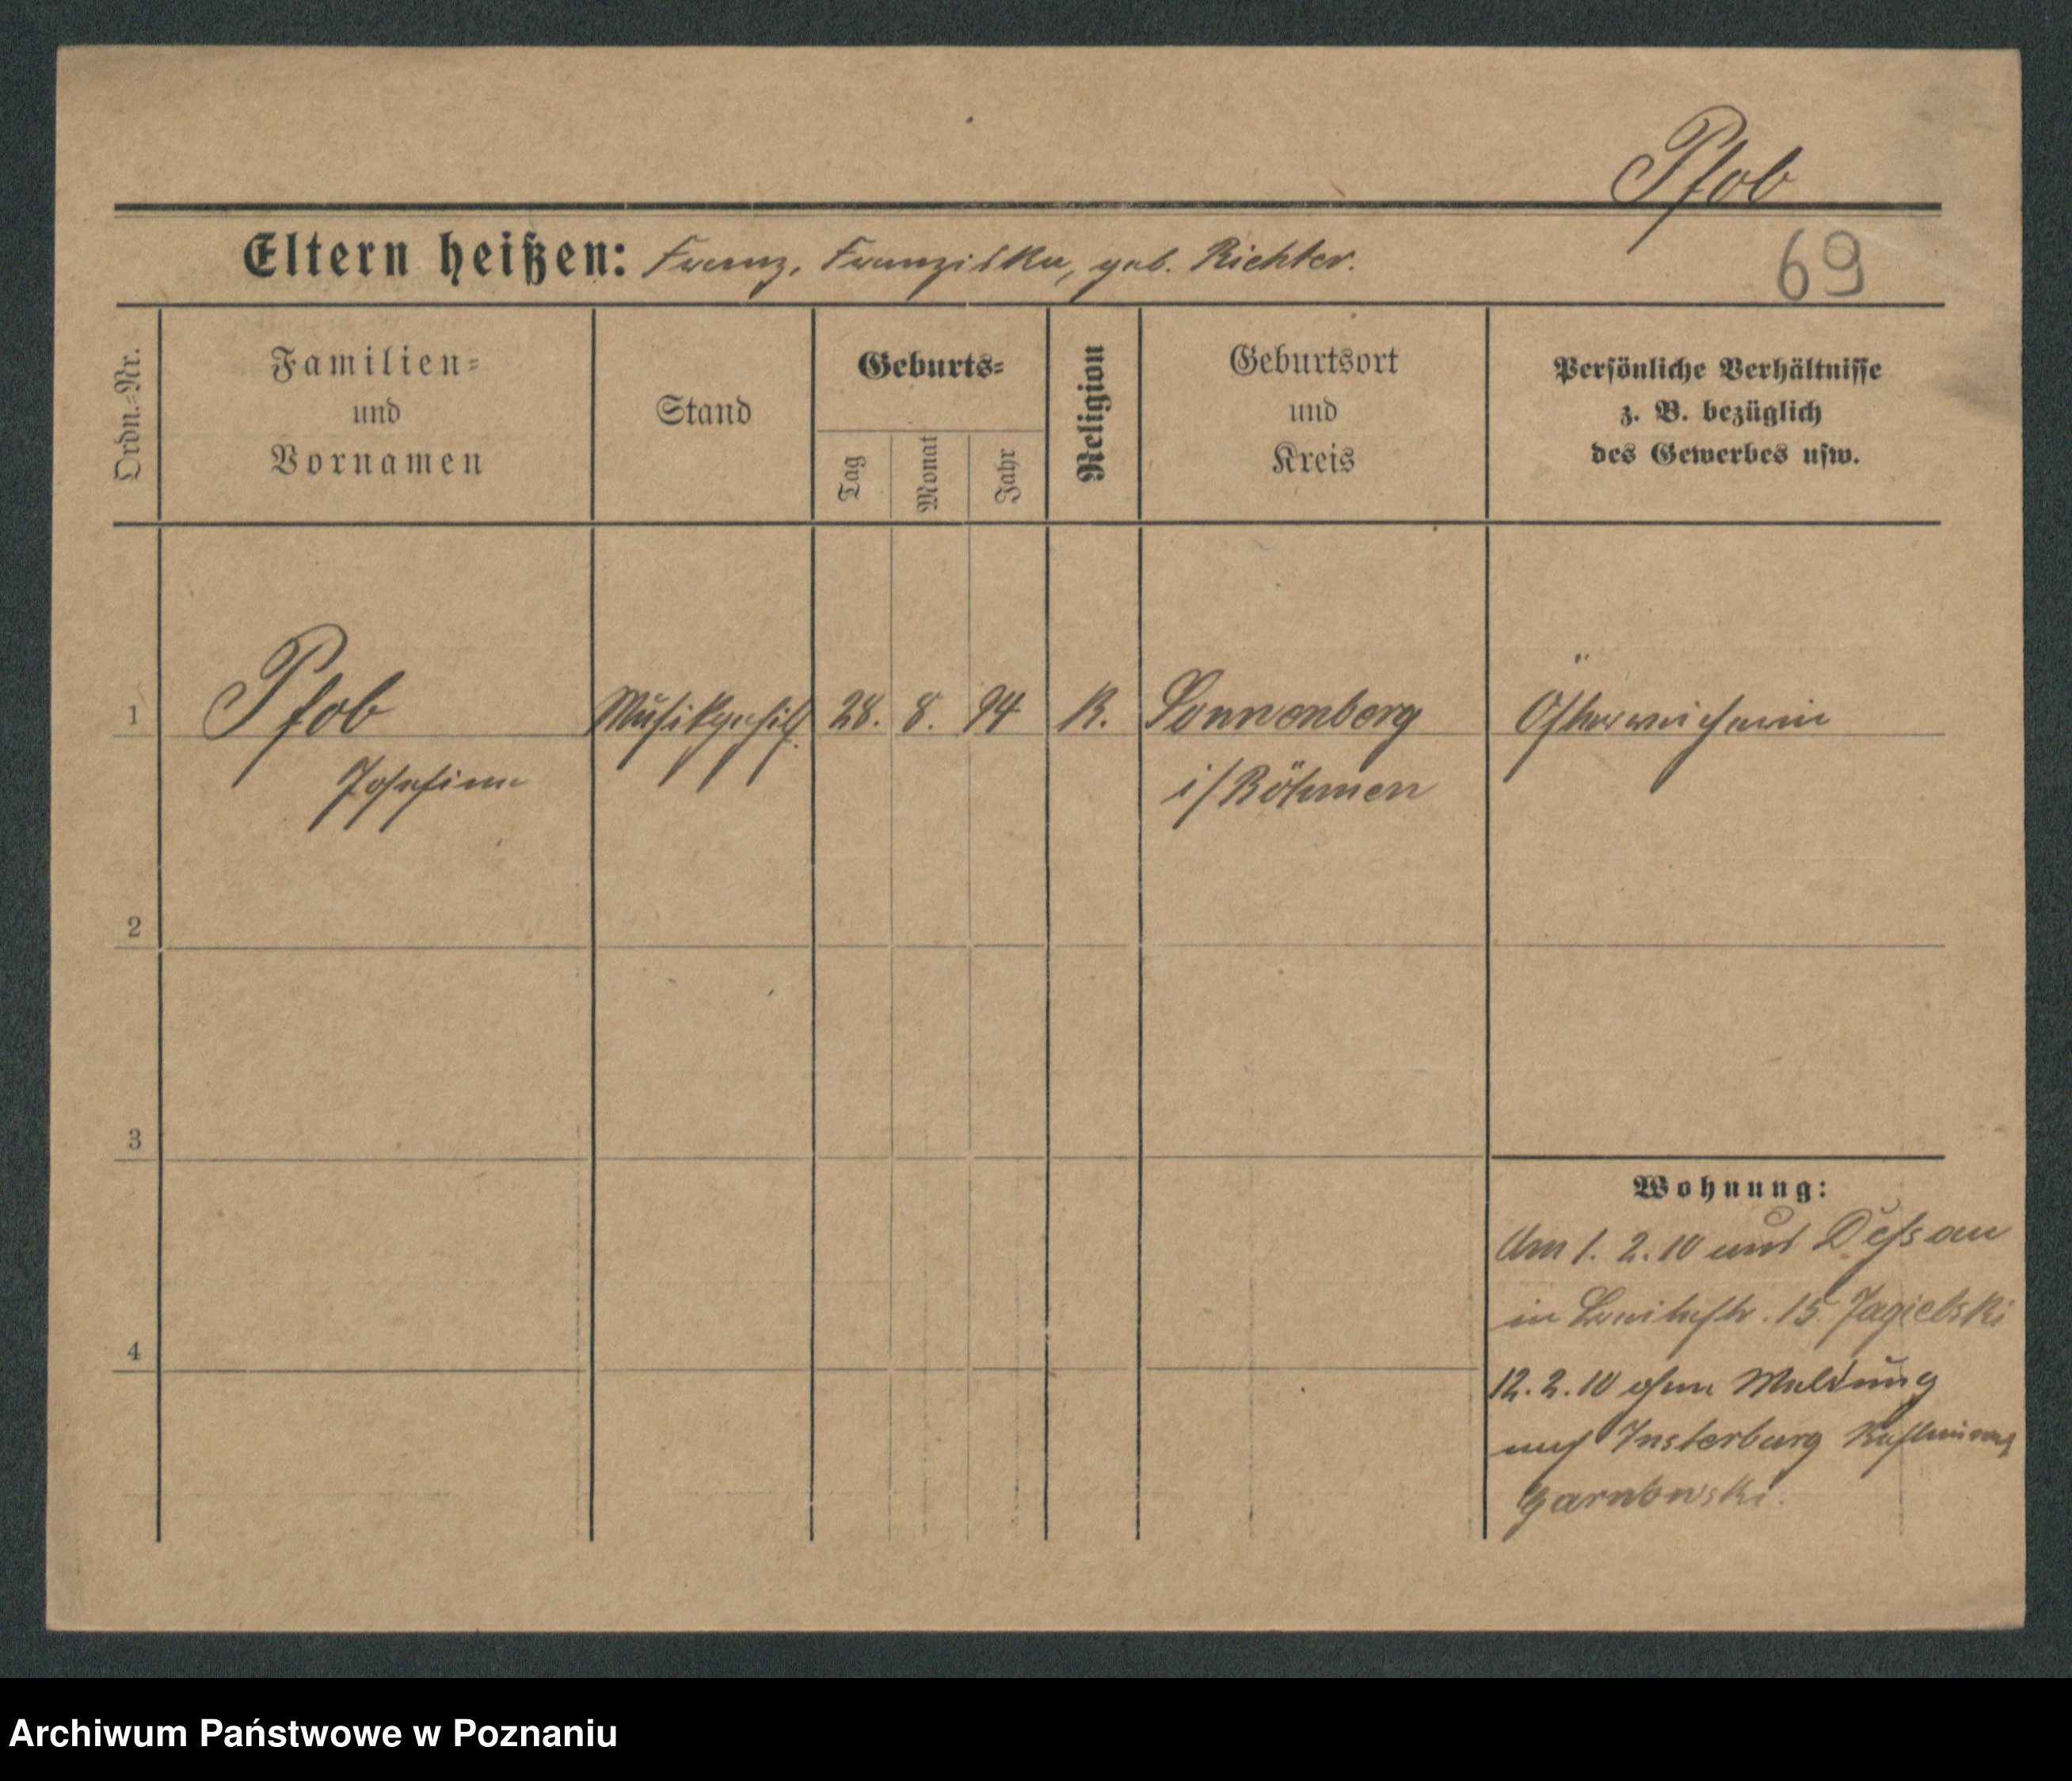 Pfob
Eltern heißen: Franz, Franziska, geb. Richter.
69
Ordn.=Nr.
Familien=
und
Vornamen
Stand
Geburts=
Tag
Monat
Jahr
Religion
Geburtsort
und
Kreis
Persönliche Verhältnisse
z. B. bezüglich
des Gewerbes usw.
1 Pfob Musikgehilf. 28. 8. 94 K. Sonnenberg Österreicherin
Josefine i/Böhmen
2
3
4
Wohnung:
Am 1. 2. 10 aus Dessau
in 15 Jagielski
12. 2. 10 ohne Meldung
nach Insterburg
Garnowski.
Archiwum Państwowe w Poznaniu